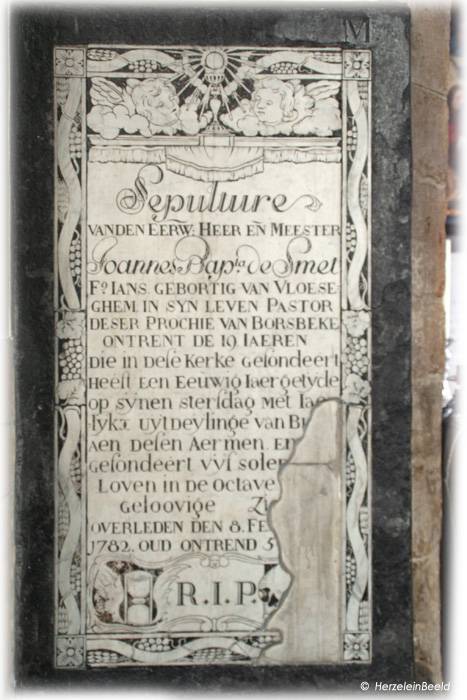 M
Sepulture
VANDEN EERW: HEER EÑ MEESTER
Joannes Bap.ta de Smet
F.o IANS. GEBORTIG VAN VLOESE
GHEM IN SYN LEVEN PASTOR
DESER PROCHIE VAN BORSBEKE
ONTRENT DE 19 IAEREN
Die in Dese Kerke Gefondeert
Heeft Een Eeuwig Iaergetyde
op synen sterfdag Met Iae
lykx uytdeylinge van Br
Aen Desen Aermen, En
Gefondeert vyf solem
Loven in de Octave
Geloovige Zi
OVERLEDEN DEN 8. FE
1782. OUD ONTREND 5
R.I.P.
© HerzeleinBeeld